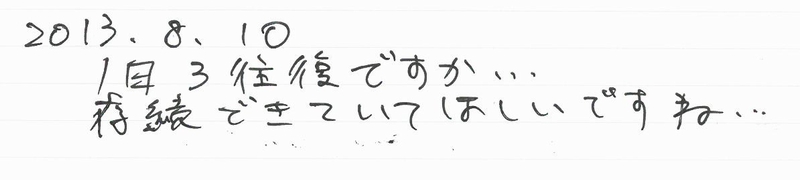 2013.8.10
1日3往復ですか...
存続できていてほしいですね...